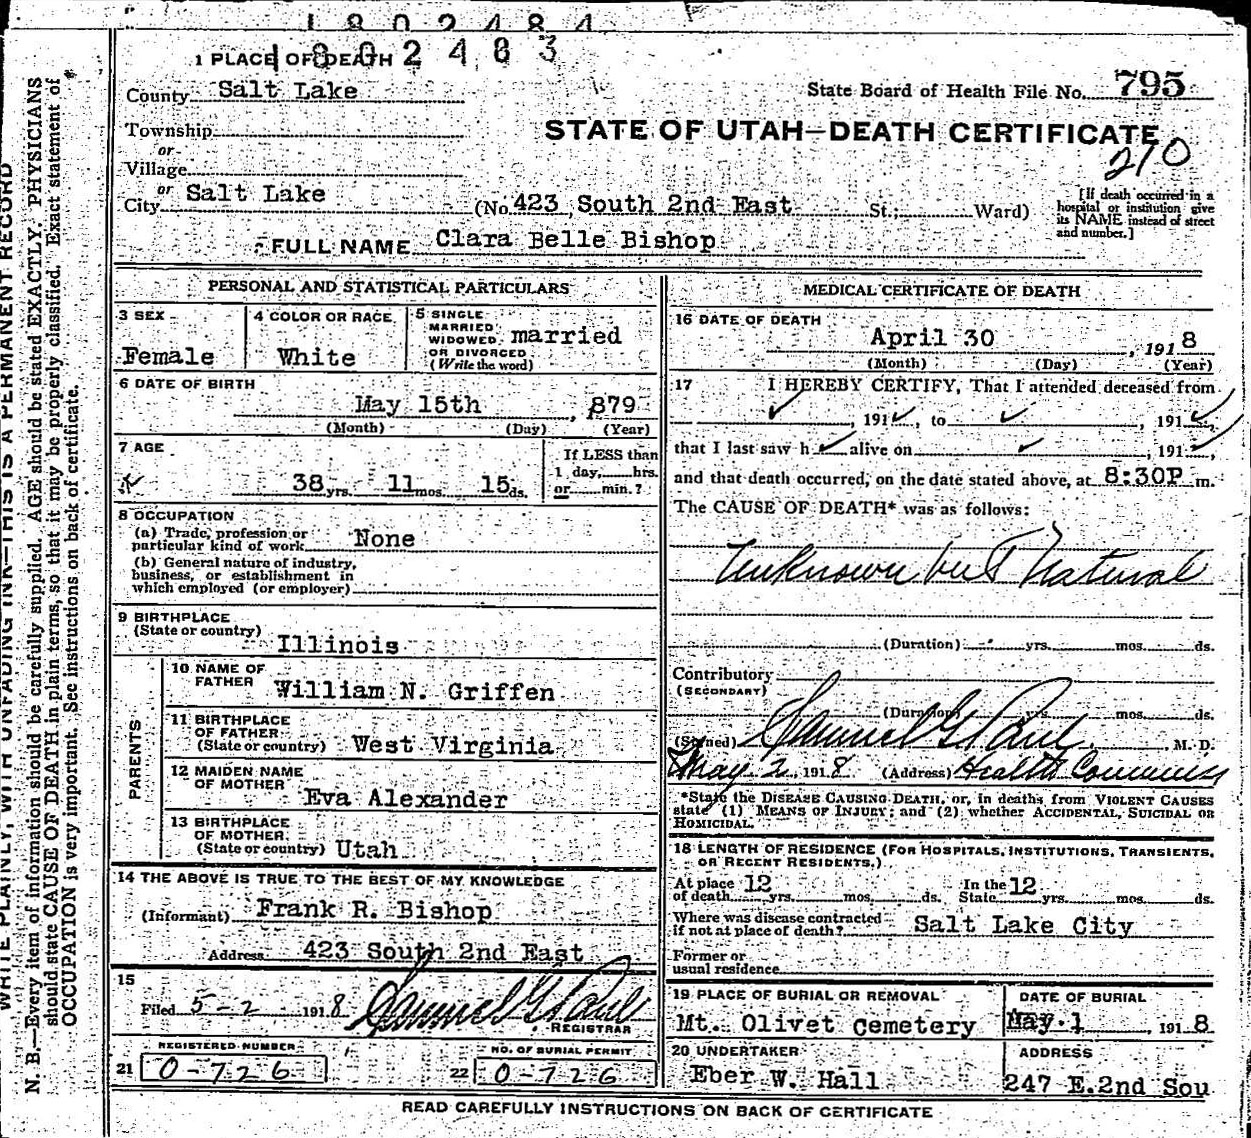 1802484
1802483
1 PLACE OF DEATH
County Salt Lake
State Board of Health File No. 795
Township
or
STATE OF UTAH—DEATH CERTIFICATE
210
Village
or
City Salt Lake (No. 423 South 2nd East St.; Ward)
[If death occurred in a hospital or institution give its NAME instead of street and number.]
FULL NAME Clara Belle Bishop
PERSONAL AND STATISTICAL PARTICULARS
3 SEX
Female
4 COLOR OR RACE
White
5 SINGLE
MARRIED
WIDOWED
OR DIVORCED
(Write the word)
married
6 DATE OF BIRTH
May 15th, 879
(Month) (Day) (Year)
7 AGE
38 yrs. 11 mos. 15 ds.
If LESS than
1 day, hrs.
or min.?
8 OCCUPATION
(a) Trade, profession or
particular kind of work None
(b) General nature of industry,
business, or establishment in
which employed (or employer)
9 BIRTHPLACE
(State or country) Illinois
PARENTS
10 NAME OF
FATHER William N. Griffen
11 BIRTHPLACE
OF FATHER
(State or country) West Virginia
12 MAIDEN NAME
OF MOTHER Eva Alexander
13 BIRTHPLACE
OF MOTHER
(State or country) Utah
14 THE ABOVE IS TRUE TO THE BEST OF MY KNOWLEDGE
(Informant) Frank R. Bishop
Address 423 South 2nd East
15
Filed 5-2 1918 Samuel G. Paul
REGISTRAR
REGISTERED NUMBER
21 0-726
NO. OF BURIAL PERMIT
22 0-726
MEDICAL CERTIFICATE OF DEATH
16 DATE OF DEATH
April 30, 1918
(Month) (Day) (Year)
17 I HEREBY CERTIFY, That I attended deceased from
✓, 191✓, to ✓, 191✓,
that I last saw h✓ alive on ✓, 191✓,
and that death occurred, on the date stated above, at 8:30P m.
The CAUSE OF DEATH* was as follows:
Unknown but Natural
(Duration) yrs. mos. ds.
Contributory
(SECONDARY)
(Duration) yrs. mos. ds.
(Signed) Samuel G. Paul, M. D.
May 2, 1918 (Address) Health
*State the DISEASE CAUSING DEATH, or, in deaths from VIOLENT CAUSES
state (1) MEANS OF INJURY; and (2) whether ACCIDENTAL, SUICIDAL OR
HOMICIDAL.
18 LENGTH OF RESIDENCE (FOR HOSPITALS, INSTITUTIONS, TRANSIENTS,
OR RECENT RESIDENTS.)
At place
of death 12 yrs. mos. ds.
In the
State 12 yrs. mos. ds.
Where was disease contracted
if not at place of death? Salt Lake City
Former or
usual residence
19 PLACE OF BURIAL OR REMOVAL
Mt. Olivet Cemetery
DATE OF BURIAL
May 1, 1918
20 UNDERTAKER
Eber W. Hall
ADDRESS
247 E.2nd Sou
READ CAREFULLY INSTRUCTIONS ON BACK OF CERTIFICATE
WRITE PLAINLY, WITH UNFADING INK—THIS IS A PERMANENT RECORD
N. B.—Every item of information should be carefully supplied. AGE should be stated EXACTLY. PHYSICIANS
should state CAUSE OF DEATH in plain terms, so that it may be properly classified. Exact statement of
OCCUPATION is very important. See instructions on back of certificate.